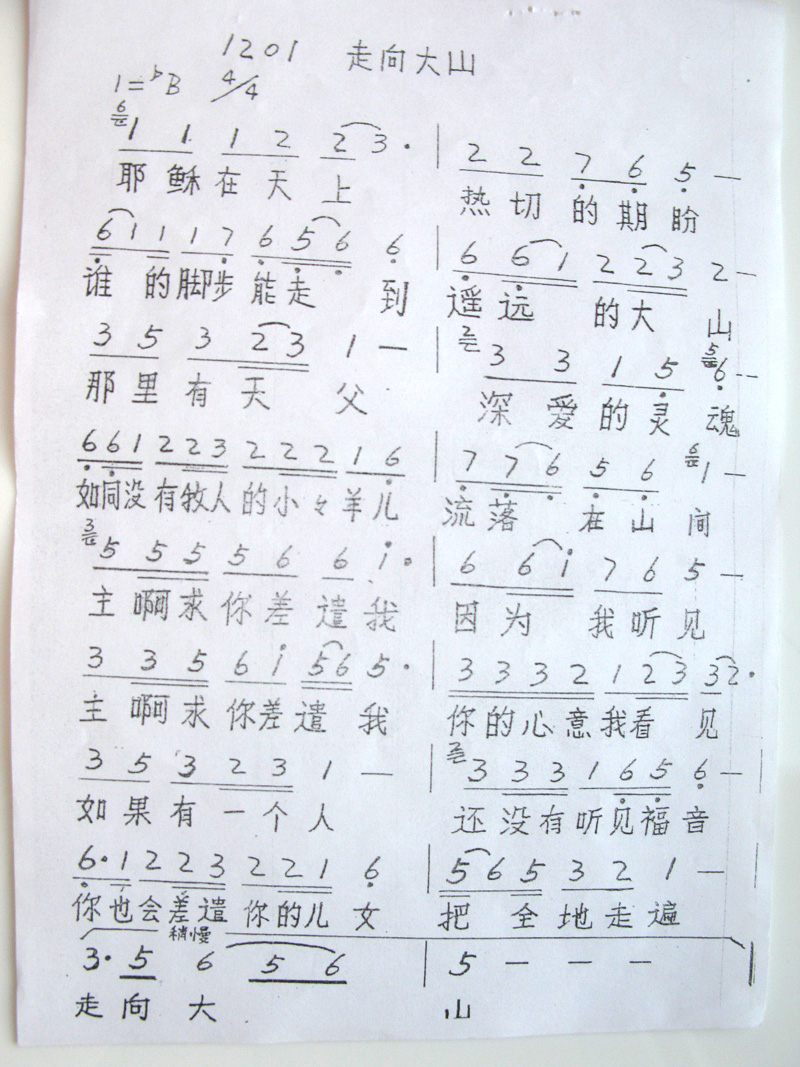 1201 走向大山
1=♭B 4/4
6 1 1 1 2 2 3 · | 2 2 7 6 5 —
耶稣在天上 热切的期盼
6 1 1 1 7 6 5 6 6 | 6 6 1 2 2 3 2 —
谁的脚步能走到 遥远的大山
3 5 3 2 3 1 — | 2 3 3 1 5 5 6 —
那里有天父 深爱的灵魂
6 6 1 2 2 3 2 2 2 1 6 | 7 7 6 5 6 6 1 —
如同没有牧人的小々羊儿 流落在山间
3 5 5 5 5 6 6 i · | 6 6 i 7 6 5 —
主啊求你差遣我 因为我听见
3 3 5 6 i 5 6 5 · | 3 3 3 2 1 2 3 3 2 ·
主啊求你差遣我 你的心意我看见
3 5 3 2 3 1 — | 2 3 3 3 1 6 5 6 —
如果有一个人 还没有听见福音
6 · 1 2 2 3 2 2 1 6 | 5 6 5 3 2 1 —
你也会差遣你的儿女 把全地走遍
稍慢
3 · 5 6 5 6 | 5 — — —
走向大 山